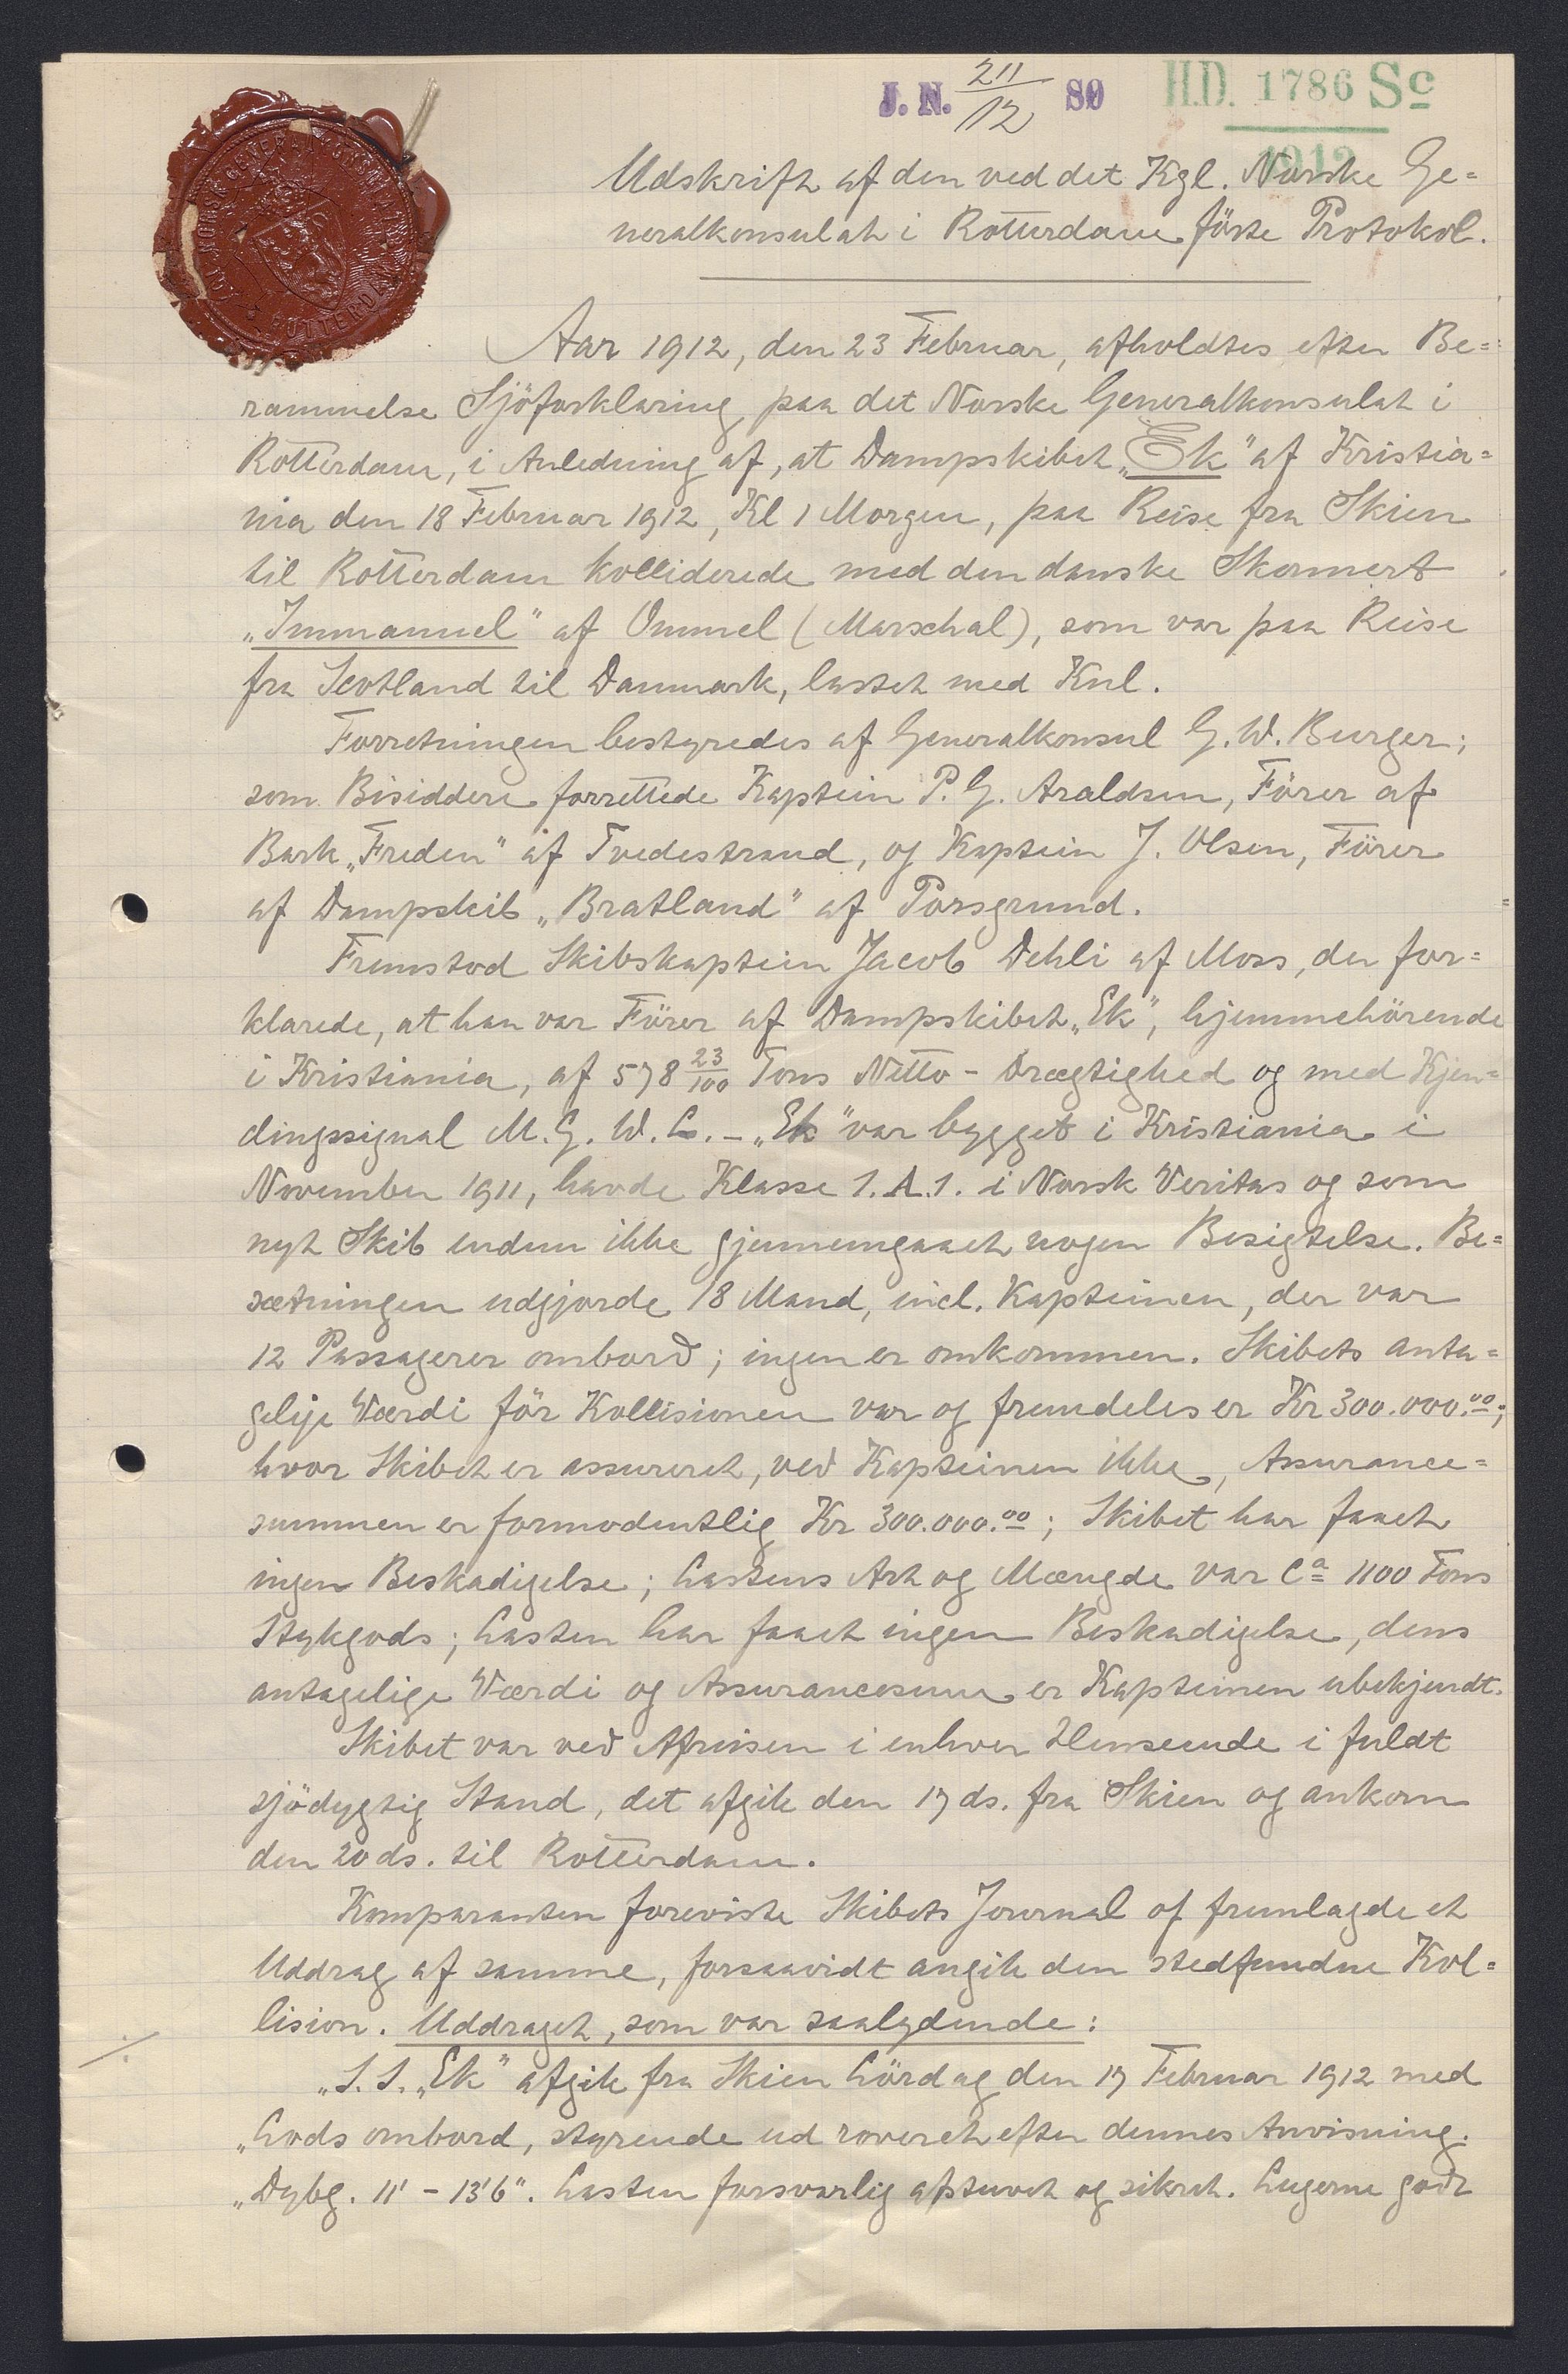 J. N. 211/12 80 H.D. 1786 Sc
1912
Udskrift af den ved det Kgl. Norske Ge=
neralkonsulat i Rotterdam förte Protokol.
Aar 1912, den 23 Februar, afholdtes efter Be=
rammelse Sjöforklaring paa det Norske Generalkonsulat i
Rotterdam, i Anledning af, at Dampskibet „Ek" af Kristia=
nia den 18 Februar 1912, Kl 1 Morgen, paa Reise fra Skien
til Rotterdam kolliderede med den danske Skonnert
„Immanuel" af Ommel (Marschal), som var paa Reise
fra Scotland til Danmark, lastet med Kul.
Forretningen bestyredes af Generalkonsul G. W. Burger;
som Bisiddere forrettede Kaptein P. G. Araldsen, Förer af
Bark „Freden" af Tvedestrand, og Kaptein J. Olsen, Förer
af Dampskib „Bratland" af Porsgrund.
Fremstod Skibskaptein Jacob Dehli af Moss, der for=
klarede, at han var Förer af Dampskibet „Ek", hjemmehörende
i Kristiania, af 578 23/100 Tons Netto - Drægtighed og med Kjen=
dingssignal M. G. W. C. – „Ek" var bygget i Kristiania i
November 1911, havde Klasse 1. A. 1. i Norsk Veritas og som
nyt Skib endnu ikke gjennemgaaet nogen Besigtelse. Be=
sætningen udgjorde 18 Mand, incl. Kapteinen, der var
12 Passagerer ombord; ingen er omkommen. Skibets anta=
gelige Værdi för Kollisionen var og fremdeles er Kr 300.000.00;
hvor Skibet er assureret, ved Kapteinen ikke, Assurance=
summen er formodentlig Kr 300.000.00; Skibet har faaet
ingen Beskadigelse; Lastens Art og Mængde var Ca 1100 Tons
Stykgods; Lasten har faaet ingen Beskadigelse, dens
antagelige Værdi og Assurancesum er Kapteinen ubekjendt.
Skibet var ved Afreisen i enhver Henseende i fuldt
sjödygtig Stand, det afgik den 17 ds. fra Skien og ankom
den 20 ds. til Rotterdam.
Komparanten foreviste Skibets Journal og fremlagde et
Uddrag af samme, forsaavidt angik den stedfundne Kol=
lision. Uddraget, som var saalydende:
„S. S. „Ek" afgik fra Skien Lördag den 17 Februar 1912 med
„Lods ombord, styrende ud roveret efter dennes Anvisning.
„Dybg. 11' – 13'6". Lasten forsvarlig afstuvet og sikret. Lugerne godt